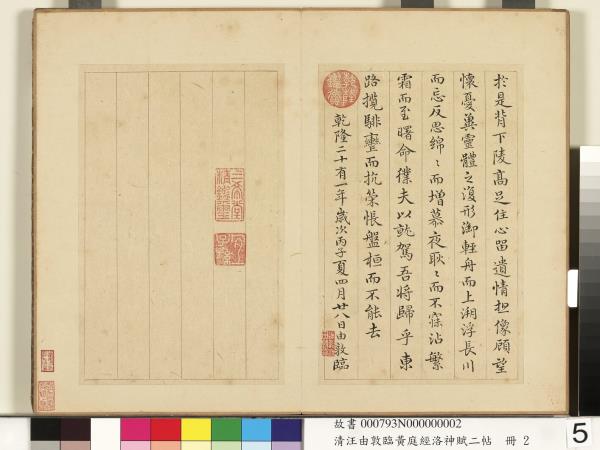 於是背下陵高足住心留遺情想像顧望
懷憂冀靈體之復形御輕舟而上溯浮長川
而忘反思綿〻而增慕夜耿〻而不寐沾繁
霜而至曙命僕夫以就駕吾將歸乎東
路攬騑轡而抗策悵盤桓而不能去
乾隆二十有一年歲次丙子夏四月廿八日由敦臨
乾隆鑑賞
三希堂精鑑璽
宜子孫
故書 000793N000000002
清汪由敦臨黃庭經洛神賦二帖 冊 2
5